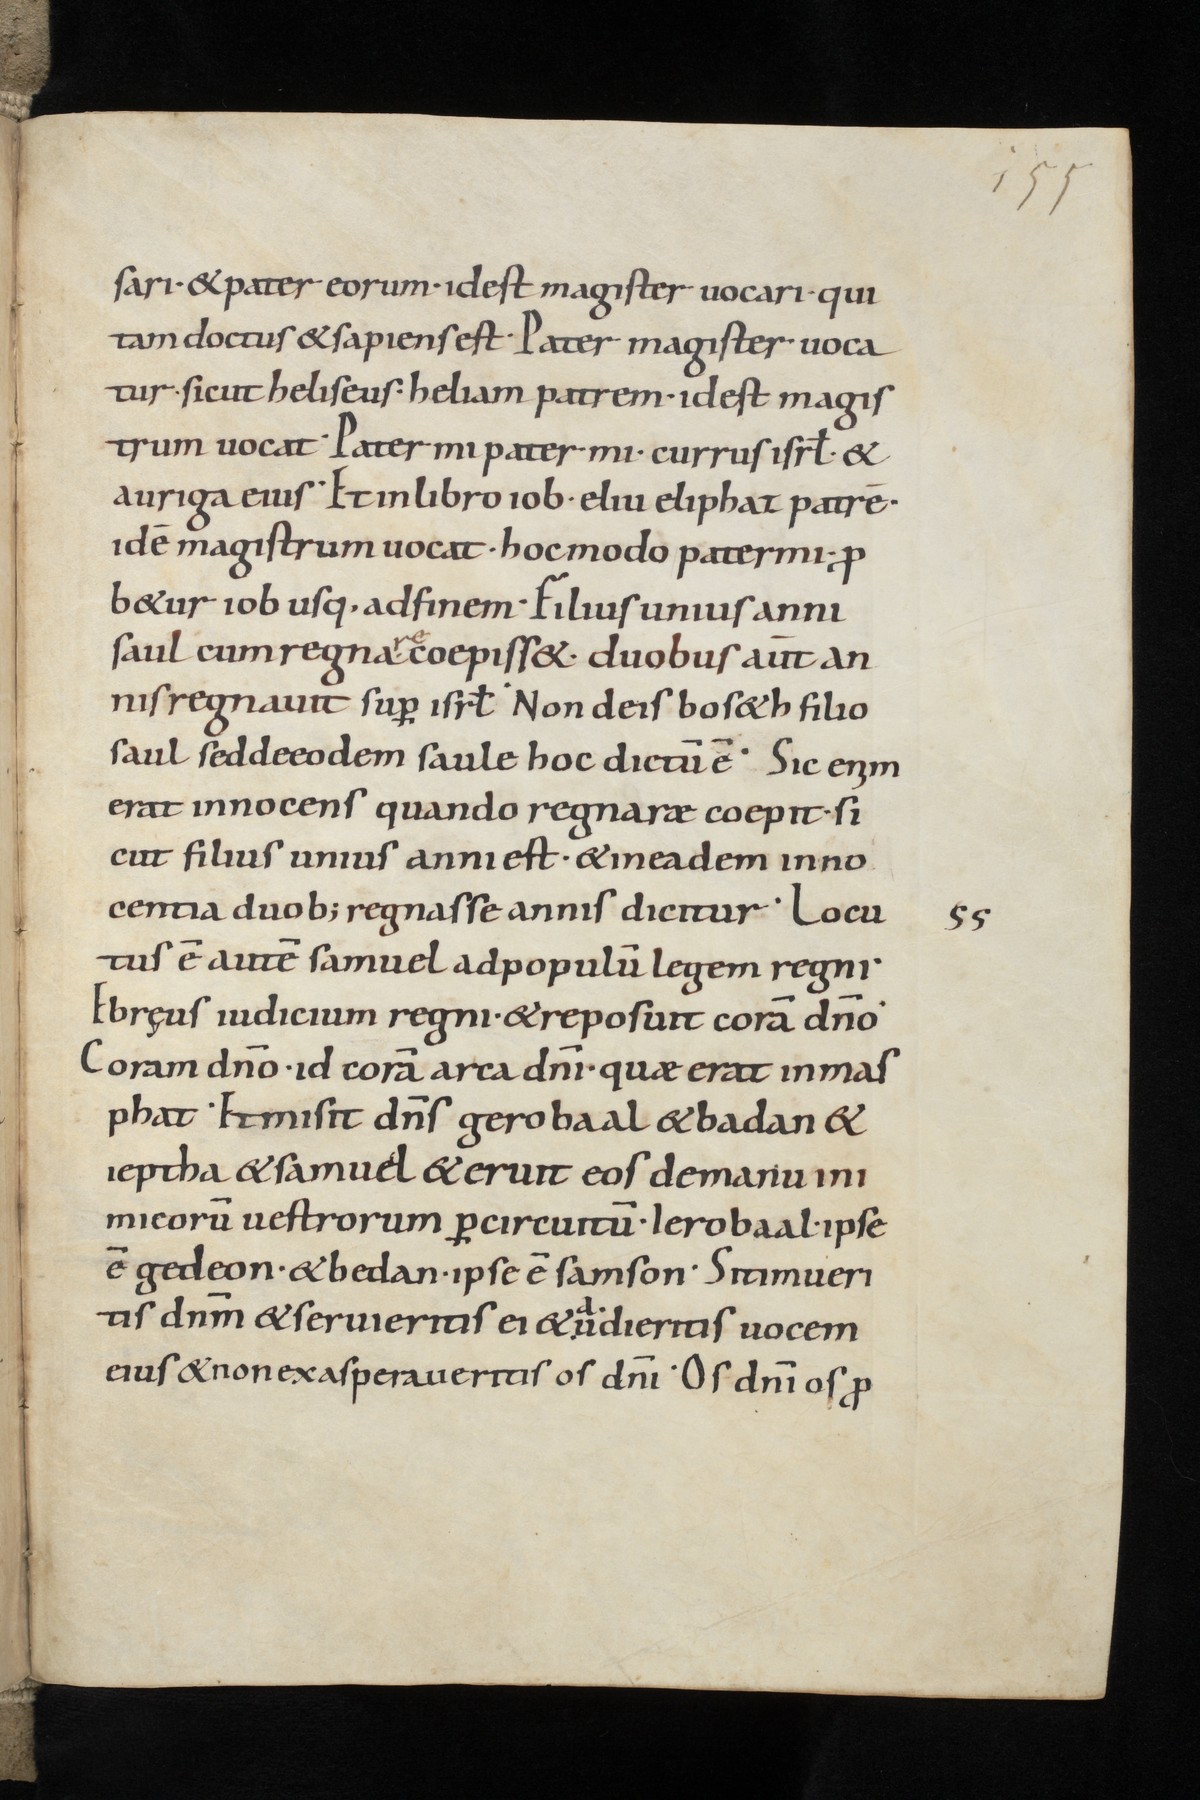 155
sari· & pater eorum· idest magister uocari· qui
tam doctus & sapiens est· Pater magister· uoca
tur· sicut heliseus· heliam patrem· idest magis
trum uocat· Pater mi pater mi· currus isrł· &
auriga eius· Et in libro iob· eliu eliphat patrē·
idē magistrum uocat· hoc modo pater mi· ꝓ
b&ur iob usq· ad finem· Filius unius anni
saul cum regnare coepiss&· duobus aūt an
nis regnauit suꝑ isrł· Non de isbos&h filio
saul sed de eodem saule hoc dictū ē· Sic enim
erat innocens quando regnaræ coepit· si
cut filius unius anni est· & in eadem inno
centia duob; regnasse annis dicitur· Locu 55
tus ē autē samuel ad populū legem regni·
Ebręus iudicium regni· & reposuit corā dn̄o·
Coram dn̄o· id corā arca dn̄i· quæ erat in mas
phat· Et misit dn̄s gerobaal & badan &
ieptha & samuel & eruit eos de manu ini
micorū uestrorum ꝑ circuitū· Ierobaal· ipse
ē gedeon· & bedan· ipse ē samson· Si timueri
tis dnm̄ & seruieritis ei & audieritis uocem
eius & non exasperaueritis os dn̄i· Os dn̄i os ꝓ